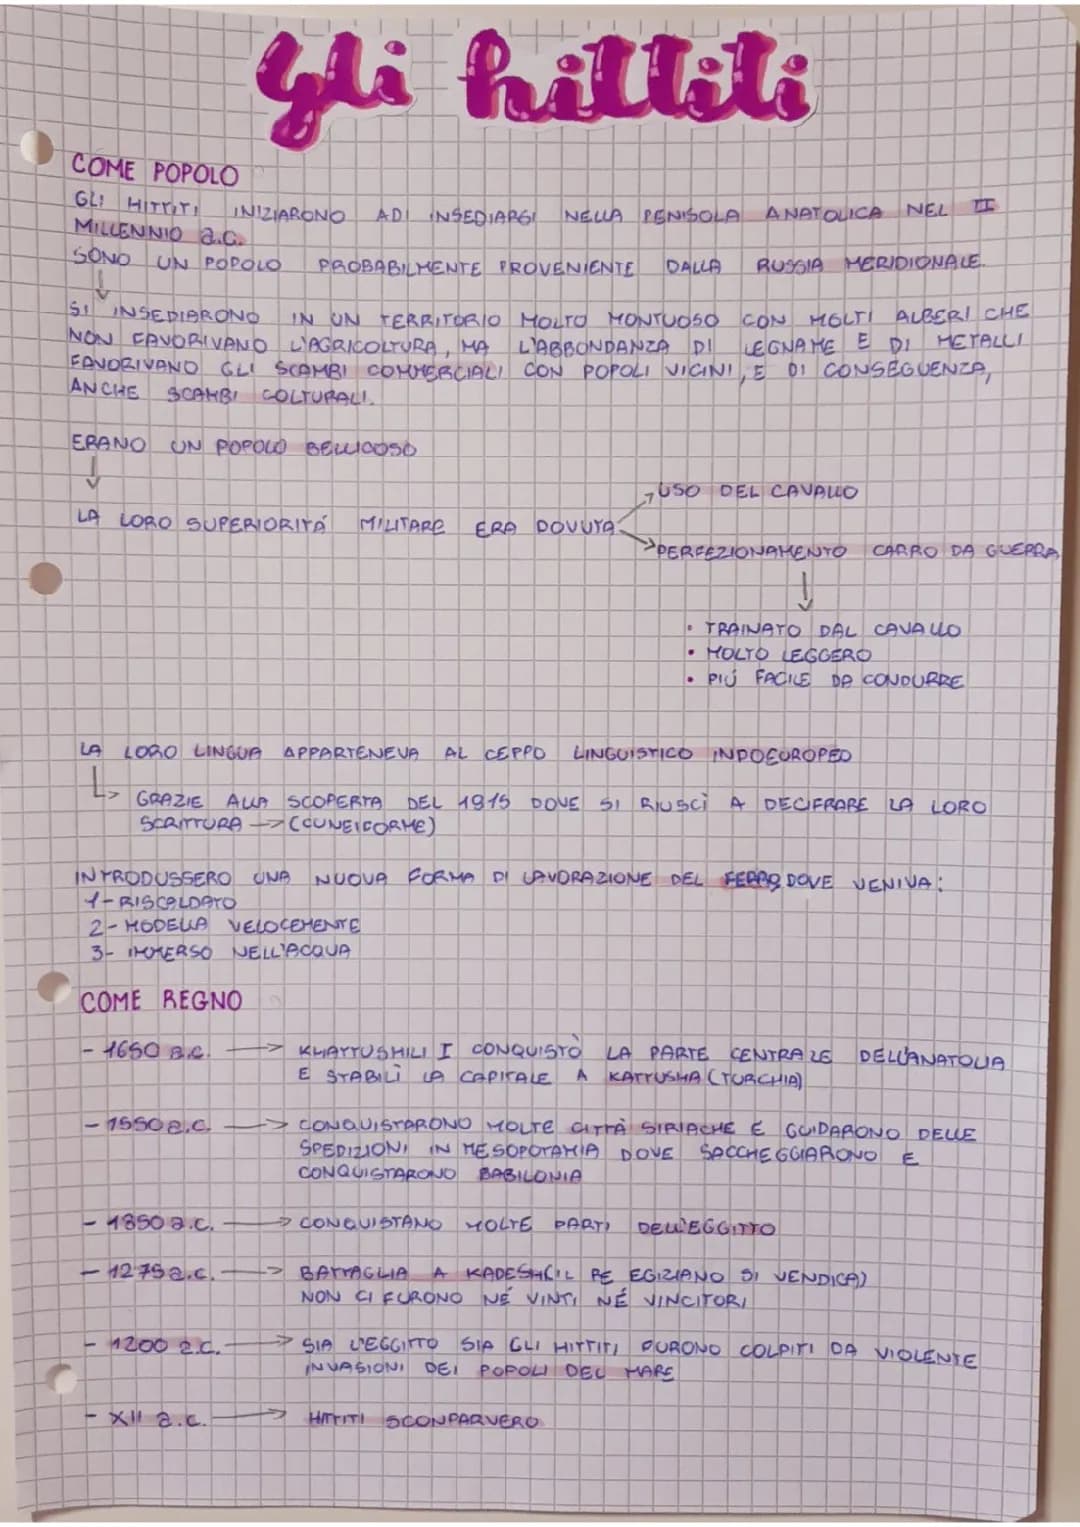 gli hittiti
COME POPOLO
GLI HITTITI INIZIARONO ADI INSEDIARSI NELLA PENISOLA ANATOLICA NEL II
MILLENNIO a.C.
SONO UN POPOLO PROBABILMENTE PROVENIENTE DALLA RUSSIA MERIDIONALE.
↓
SI INSEDIARONO IN UN TERRITORIO MOLTO MONTUOSO CON MOLTI ALBERI CHE
NON FAVORIVANO L'AGRICOLTURA, MA L'ABBONDANZA DI LEGNAME E DI METALLI
FAVORIVANO GLI SCAMBI COMMERCIALI CON POPOLI VICINI, E DI CONSEGUENZA,
ANCHE SCAMBI COLTURALI.
ERANO UN POPOLO BELLICOSO
↓
→ USO DEL CAVALLO
LA LORO SUPERIORITÁ MILITARE ERA DOVUTA
→ PERFEZIONAMENTO CARRO DA GUERRA
↓
• TRAINATO DAL CAVALLO
• MOLTO LEGGERO
• PIÚ FACILE DA CONDURRE
LA LORO LINGUA APPARTENEVA AL CEPPO LINGUISTICO INDOEUROPEO
↳ GRAZIE ALLA SCOPERTA DEL 1915 DOVE SI RIUSCÌ A DECIFRARE LA LORO
SCRITTURA → (CUNEIFORME)
INTRODUSSERO UNA NUOVA FORMA DI LAVORAZIONE DEL FERRO DOVE VENIVA:
1- RISCALDATO
2- MODELLA VELOCEMENTE
3- IMMERSO NELL'ACQUA
COME REGNO
- 1650 a.C. → KHATTUSHILI I CONQUISTÒ LA PARTE CENTRALE DELL'ANATOLIA
E STABILÌ LA CAPITALE A KATTUSHA (TURCHIA)
- 1550 a.C. → CONQUISTARONO MOLTE CITTÀ SIRIACHE E GUIDARONO DELLE
SPEDIZIONI IN MESOPOTAMIA DOVE SACCHEGGIARONO E
CONQUISTARONO BABILONIA
- 1350 a.C. → CONQUISTANO MOLTE PARTI DELL'EGGITTO
- 1275 a.C. → BATTAGLIA A KADESH (IL RE EGIZIANO SI VENDICA)
NON CI FURONO NÉ VINTI NÉ VINCITORI
- 1200 a.C. → SIA L'EGGITTO SIA GLI HITTITI FURONO COLPITI DA VIOLENTE
INVASIONI DEI POPOLI DEL MARE
- XII a.C. → HITTITI SCONPARVERO